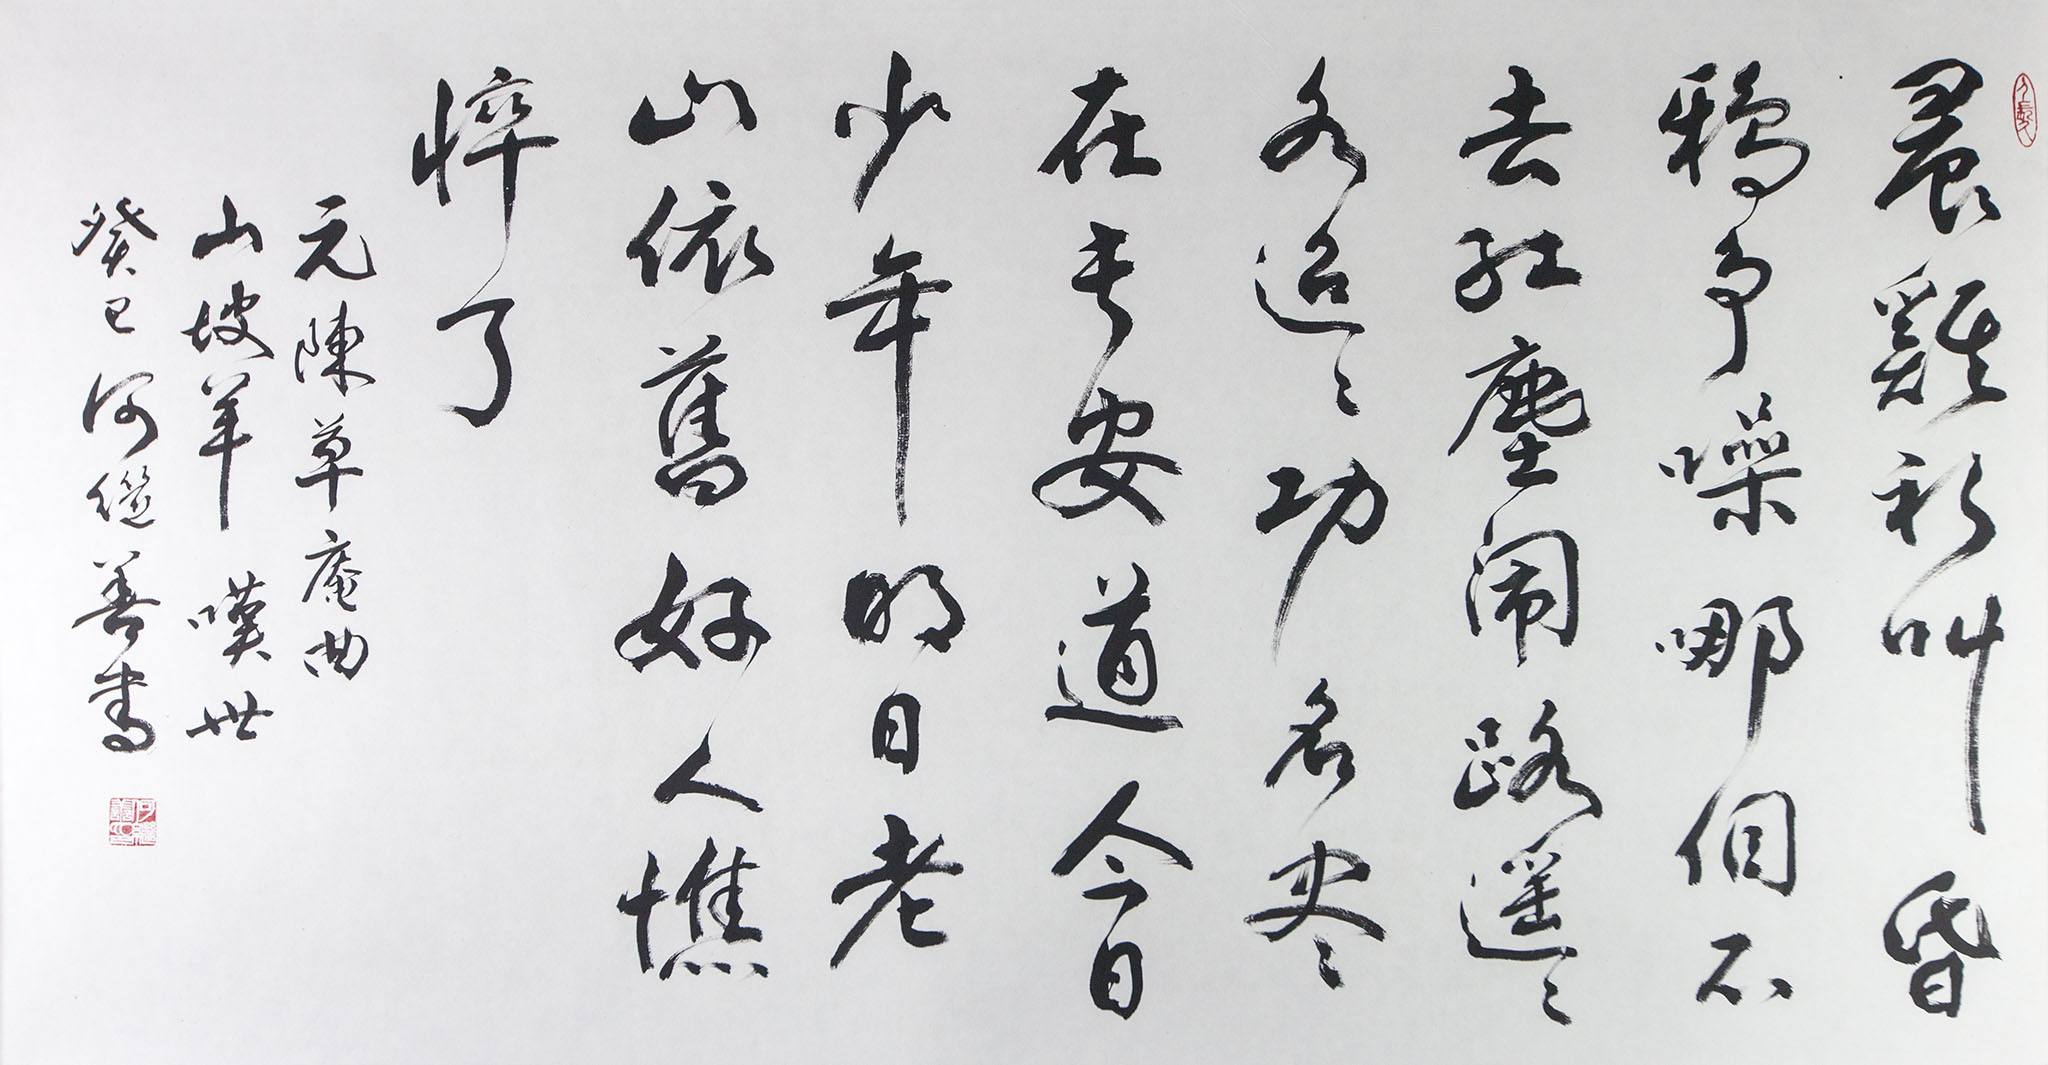 晨雞初叫昏
鸦争噪哪個不
去红塵闹路遥〻
水迢〻功名尽
在长安道今日
少年明日老
山依舊好人憔
悴了
元陳草庵曲
山坡羊 嘆世
癸巳何继善書